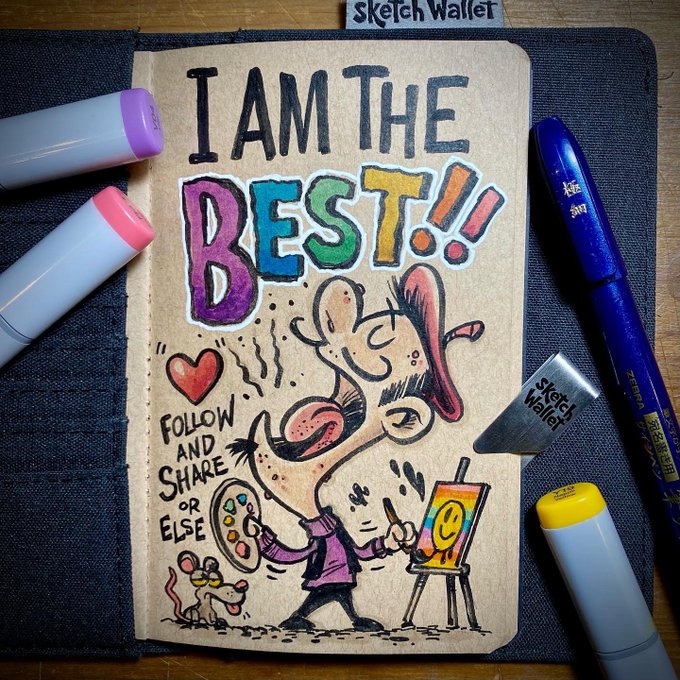 sketch wallet
I AM THE
BEST!!
"❤"
FOLLOW
AND
SHARE
OR
ELSE
sketch
wallet
ZEBRA
Y19